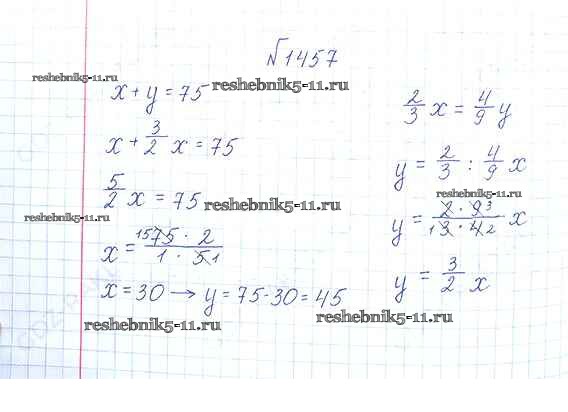 №1457
reshebnik5-11.ru
x + y = 75
reshebnik5-11.ru
x + 3/2 x = 75
5/2 x = 75
reshebnik5-11.ru
reshebnik5-11.ru
x = 15 75 · 2 / 1 · 5 1
x = 30 → y = 75 - 30 = 45
reshebnik5-11.ru
reshebnik5-11.ru
2/3 x = 4/9 y
y = 2/3 : 4/9 x
reshebnik5-11.ru
y = 2 · 9 3 / 1 3 · 4 2 x
y = 3/2 x